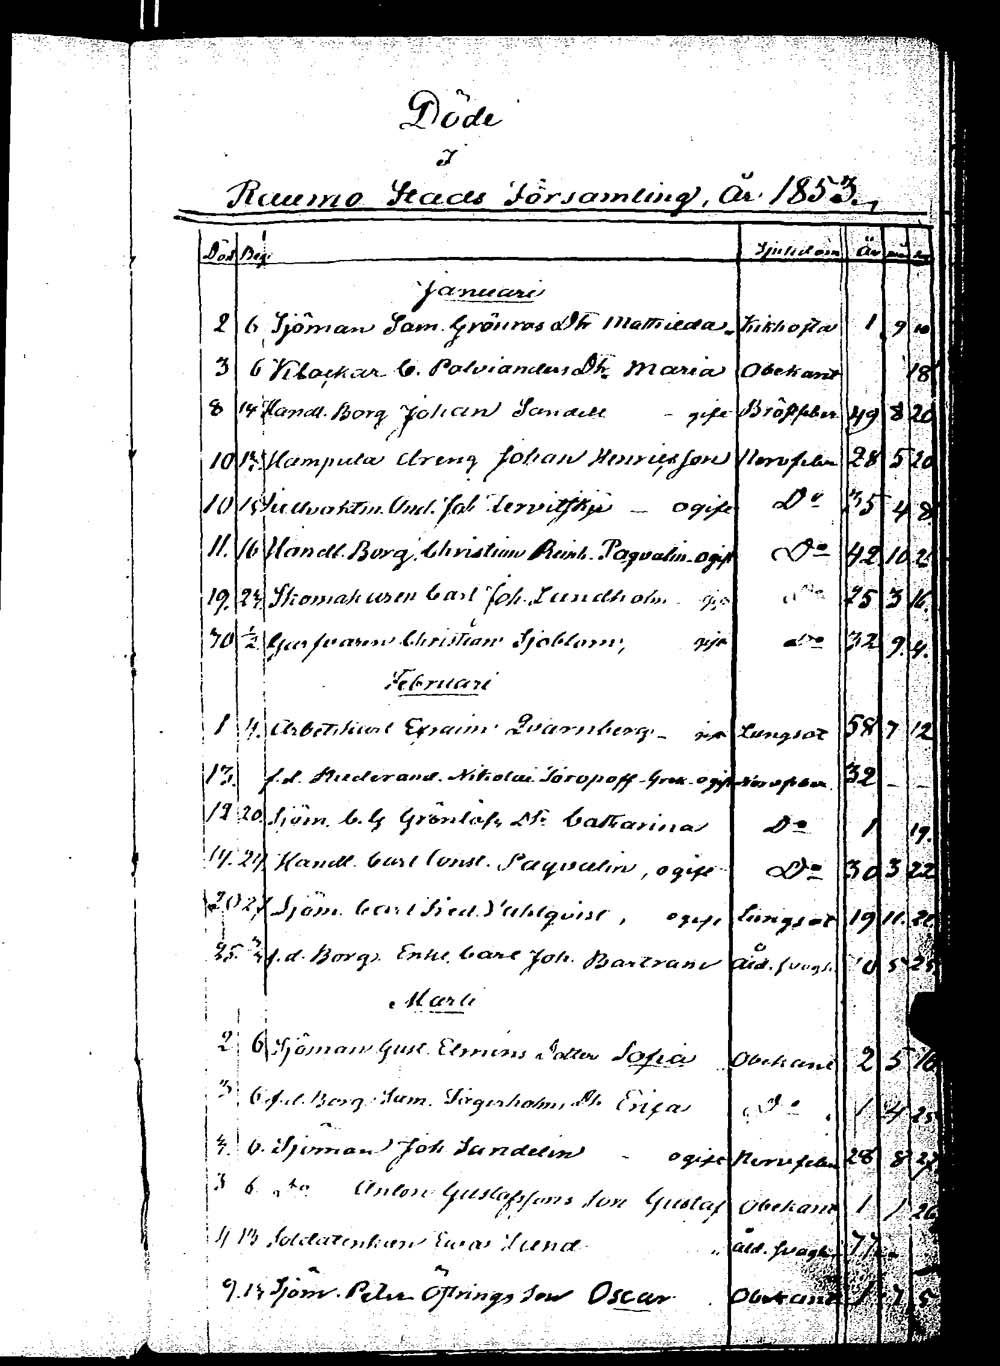 Döde
I
Raumo Stads Församling, År 1853.
Död Beg. Sjukdom År
Januari
2 6 Sjöman Sam. Grönros Dtr Mathilda Kikhosta 1 9 10
3 6 Klockar C. Polvianders Dtr Maria Obekant 18
8 14 Handl. Borg Johan Sandell - gift Bröstfeber 49 8 20
10 Kamputa dreng Johan Henricsson Nervfeber 28 5 20
10 And. Joh - ogift Do 35 4 8
11. 16 Handl. Borg. Christian Reinh. Paqvalin - ogift Do 42 10
19. Skomakaren Carl Joh. Lundholm gift Do 3 16.
30 ½ Garfvaren Christian Sjöblom, gift Do 32 9. 4.
Februari
1 4. Arbetskarl Efraim Qvarnberg - Lungsot 58 7 12
13. f.d. Nikolai Soropoff Grek. ogift Nervfeber 32 - -
12 20 Sjöm. C. G Grönlöfs Dtr Catharina Do 1 19.
14. Handl. Carl Const. Paqvalin, ogift Do 30 3 22
20 27 Sjöm. Carl Fred. Vahlqvist, ogift Lungsot 19 11.
25 f.d. Borg. Enk. Carl Joh. Bartram Åld. svagh. 5 25
Marti
2 6 Sjöman Gust. Elméns Dotter Sofia Obekant 2 5 16
3 6 f.d. Borg. Sam. Segerholms Dtr Erica Do 1 4 25
6. Sjöman Joh Sandelin - ogift Nervfeber 28 8 27
3 6 Anton Gustafssons Son Gustaf Obekant 1 1 26
4 13 Soldatenkan Ewa Lund Åld. svagh. 77
9. Sjöm. Peter Öftrings Son Oscar Obekant 1 7 5